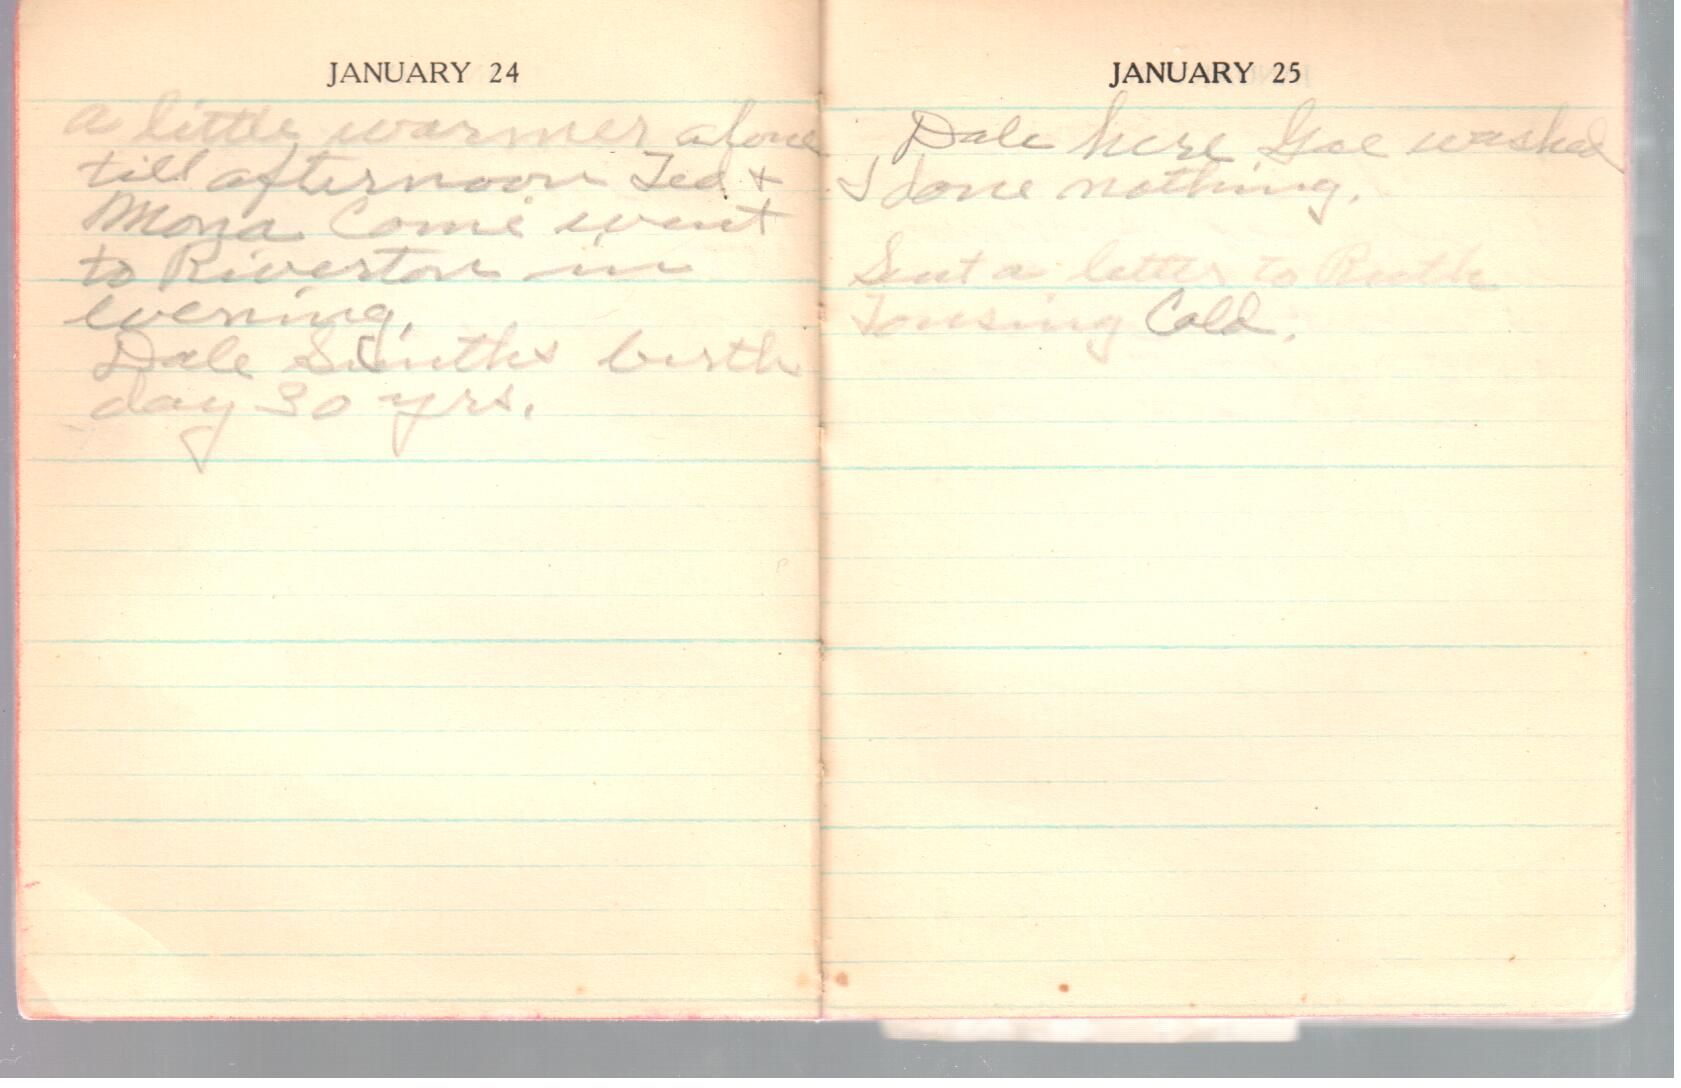 JANUARY 24
a little warmer alone
till afternoon Ted +
Mona Come went
to Riverton in
evening.
Dale Smiths birth
day 30 yrs.
JANUARY 25
Dale here washed
I done nothing.
Sent a letter to Ruth
Cold.